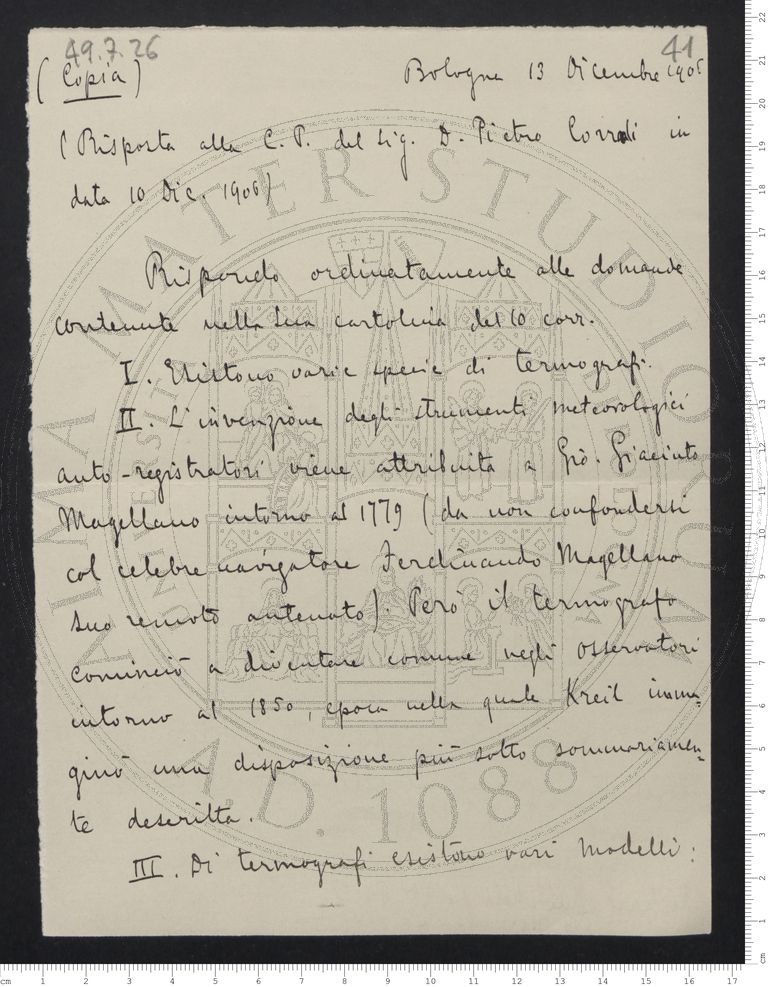 49.7.26 41
(Copia) Bologna 13 Dicembre 1906
(Risposta alla C. P. del Sig. D. Pietro Corradi in
data 10 Dic. 1906)
Rispondo ordinatamente alle domande
contenute nella Sua cartolina del 10 corr.
I. Esistono varie specie di termografi.
II. L'invenzione degli strumenti meteorologici
auto-registratori viene attribuita a Giò. Giacinto
Magellano intorno al 1779 (da non confondersi
col celebre navigatore Ferdinando Magellano
suo remoto antenato). Però il termografo
cominciò a diventare comune negli osservatori
intorno al 1850, epoca nella quale Kreil imma=
ginò una disposizione più sotto sommariamen=
te descritta.
III. Di termografi esistono vari modelli:
ALMA MATER STUDIORUM
UNIVERSITÀ
A.D. 1088